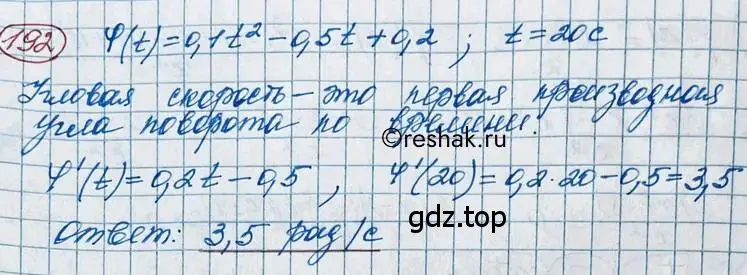 192 φ(t)=0,1t²-0,5t+0,2; t=20с
Угловая скорость - это первая производная
угла поворота по времени.
©reshak.ru
φ'(t)=0,2t-0,5, φ'(20)=0,2·20-0,5=3,5
gdz.top
Ответ: 3,5 рад/с